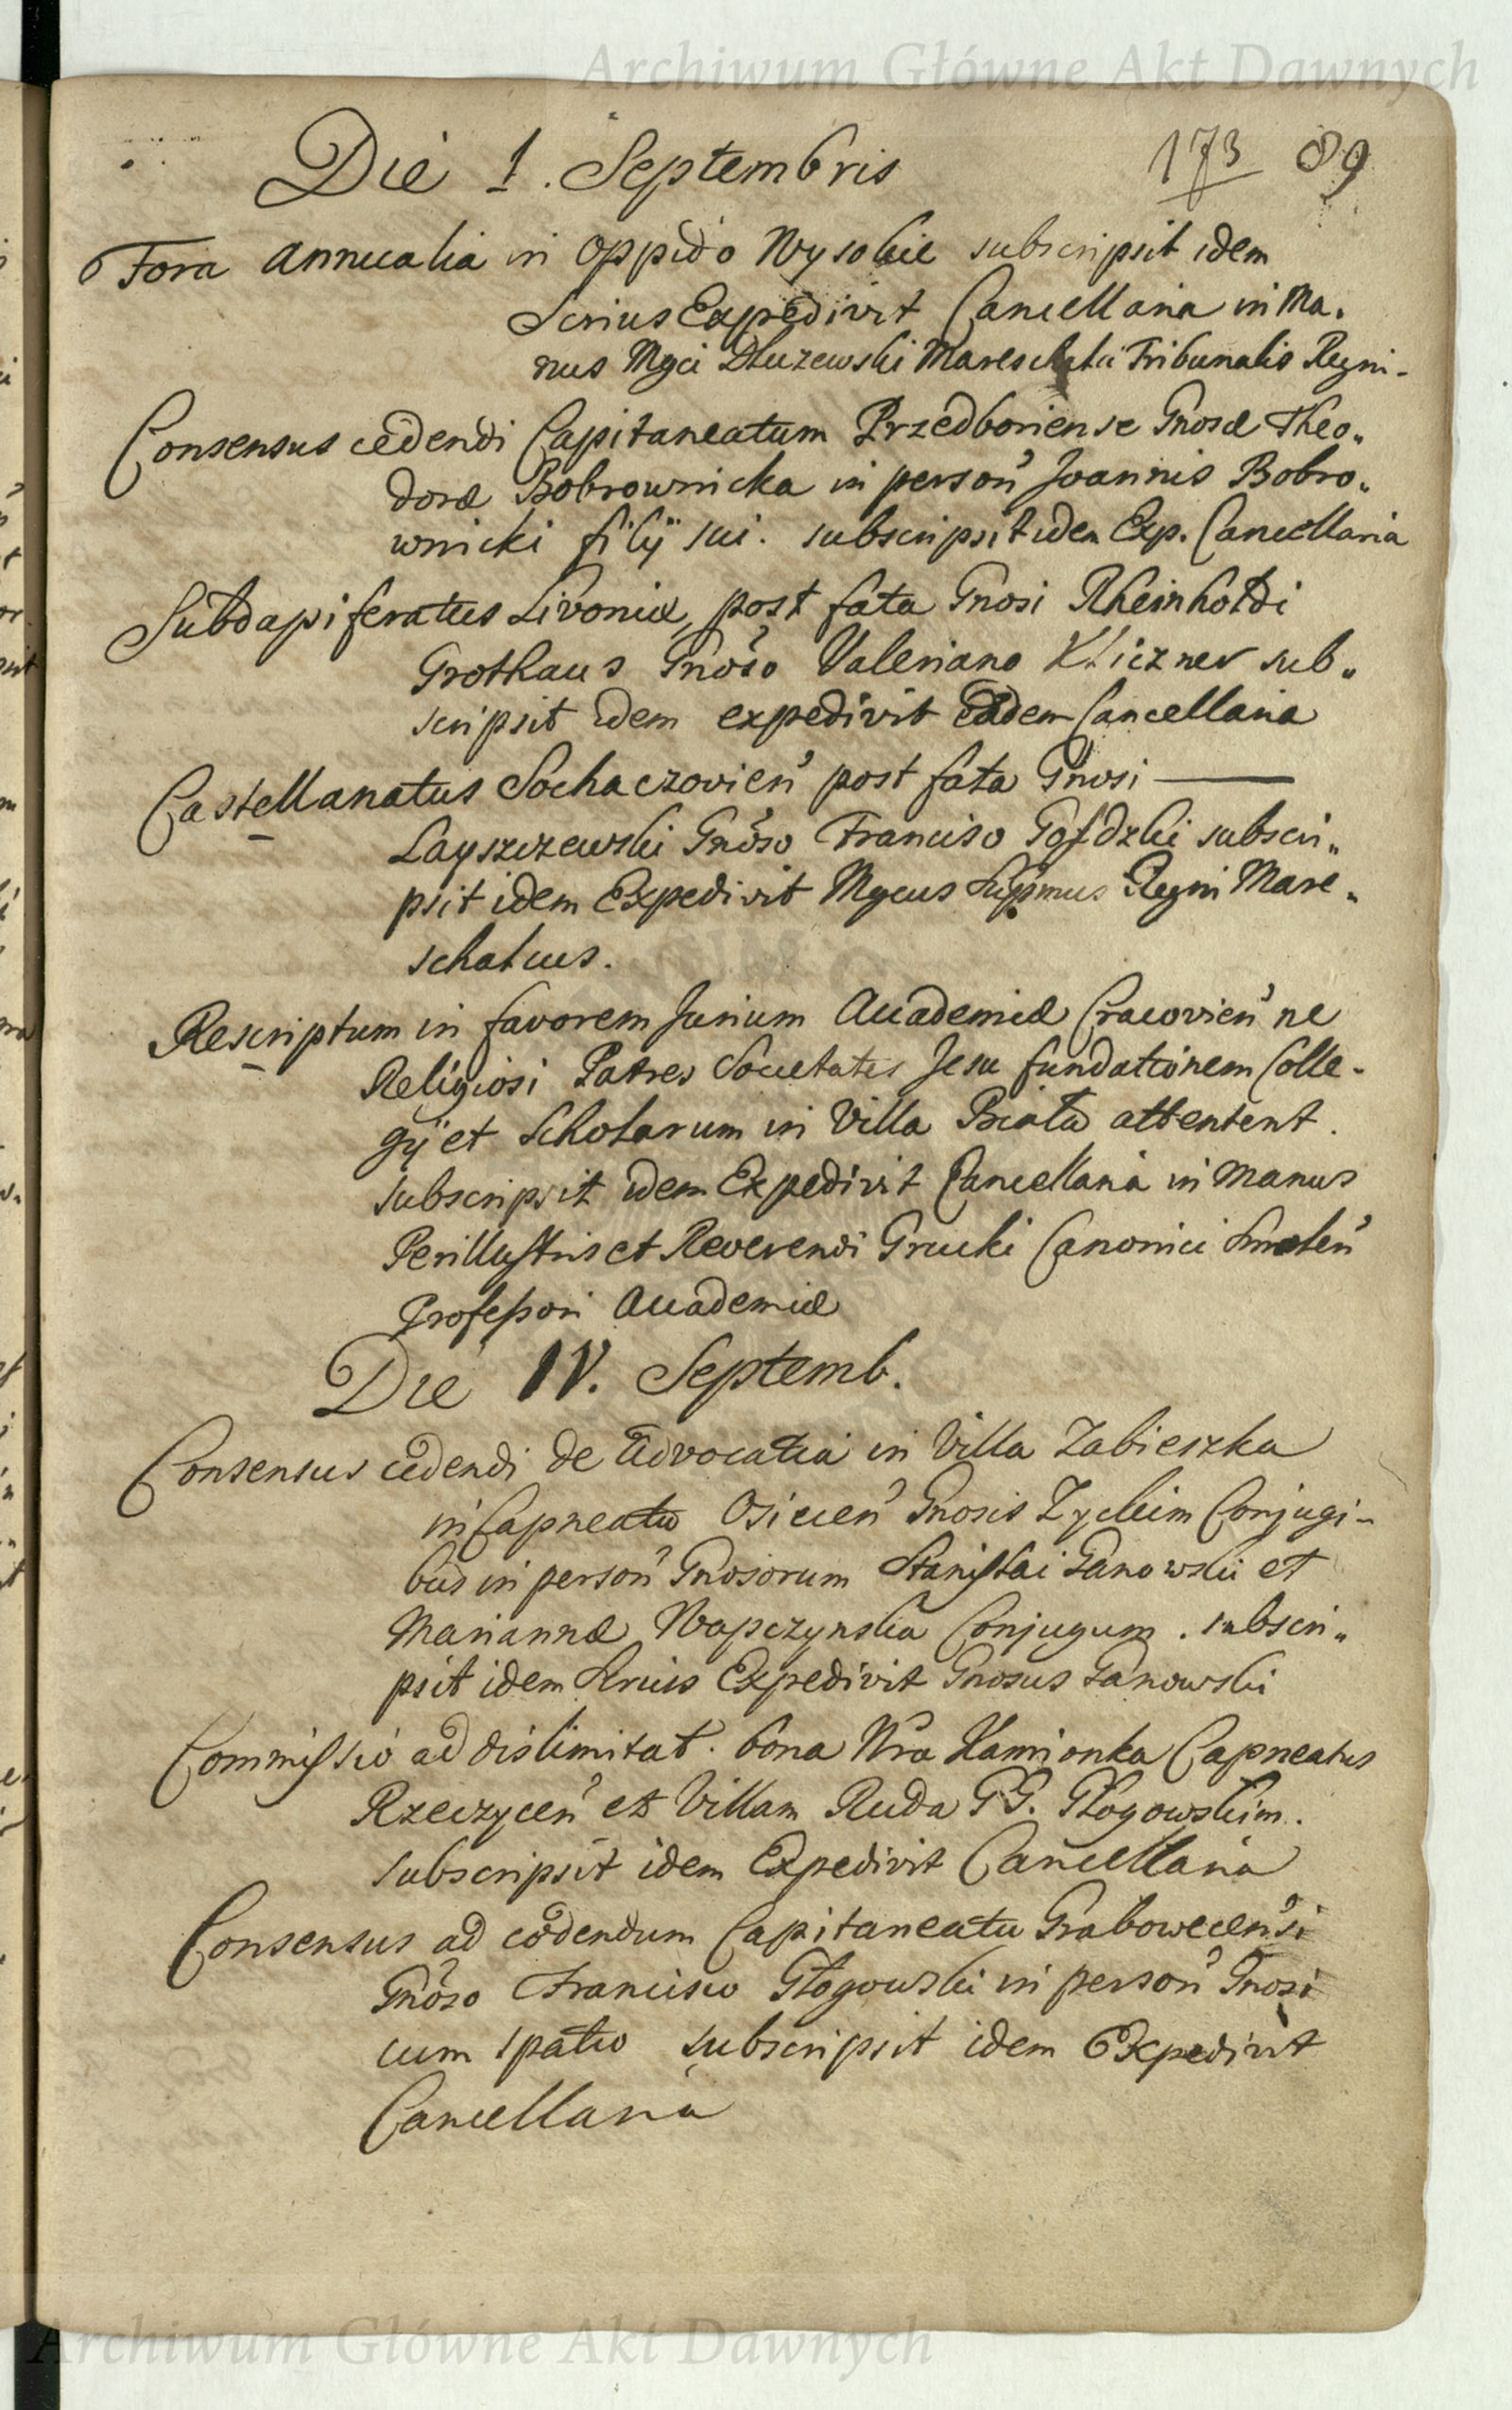 Archiwum Główne Akt Dawnych
173 89
Die 1. Septembris
Fora Annualia in Oppido Wysokie subscripsit idem
Srius Expedivit Cancellaria in Ma.
nus Mgci Dłuzewski Mareschalci Tribunalis Regni.
Consensus cedendi Capitaneatum Przedboriense Gnosæ Theo„
doræ Bobrownicka in persoñ Joannis Bobro„
wnicki filÿ sui. subscripsit idem Exp. Cancellaria
Subdapiferatus Livoniæ, post fata Gnosi Rheinholdi
Grothaus Gnoso Valeriano Kliczner sub„
scripsit idem expedivit eadem Cancellaria
Castellanatus Sochaczovień post fata Gnosi —
Layszczewski Gnoso Franciso Gofdzki subscri„
psit idem Expedivit Mgcus Supmus Regni Mare„
schalcus.
Rescriptum in favorem Jurium Academiæ Cracovień ne
Religiosi Patres Societatis Jesu fundationem Colle-
gÿ et Scholarum in Villa Biała attentent.
subscripsit idem Expedivit Cancellaria in manus
Perillustris et Reverendi Grucki Canonici Smoleń
Professori Academiæ
Die IV. Septemb.
Consensus cedendi de Advocatia in Villa Zabieszka
in Capneatu Osiecień Gnosis Zyckim Conjugi-
bus in persoñ Gnosorum Stanislai Łanowski et
Mariannæ Wapczynska Conjugum. subscri„
psit idem Srius Expedivit Gnosus Łanowski
Commissio ad dislimitat. bona Nra Kamionka Capneatus
Rzeczyceń et Villam Ruda GG. Głogowskim.
subscripsit idem Expedivit Cancellaria
Consensus ad cedendum Capitaneatu Grabowecensi
Gnoso Francisco Głogowski in persoñ Gnosi
cum spatio subscripsit idem Expedivit
Cancellaria
Archiwum Główne Akt Dawnych